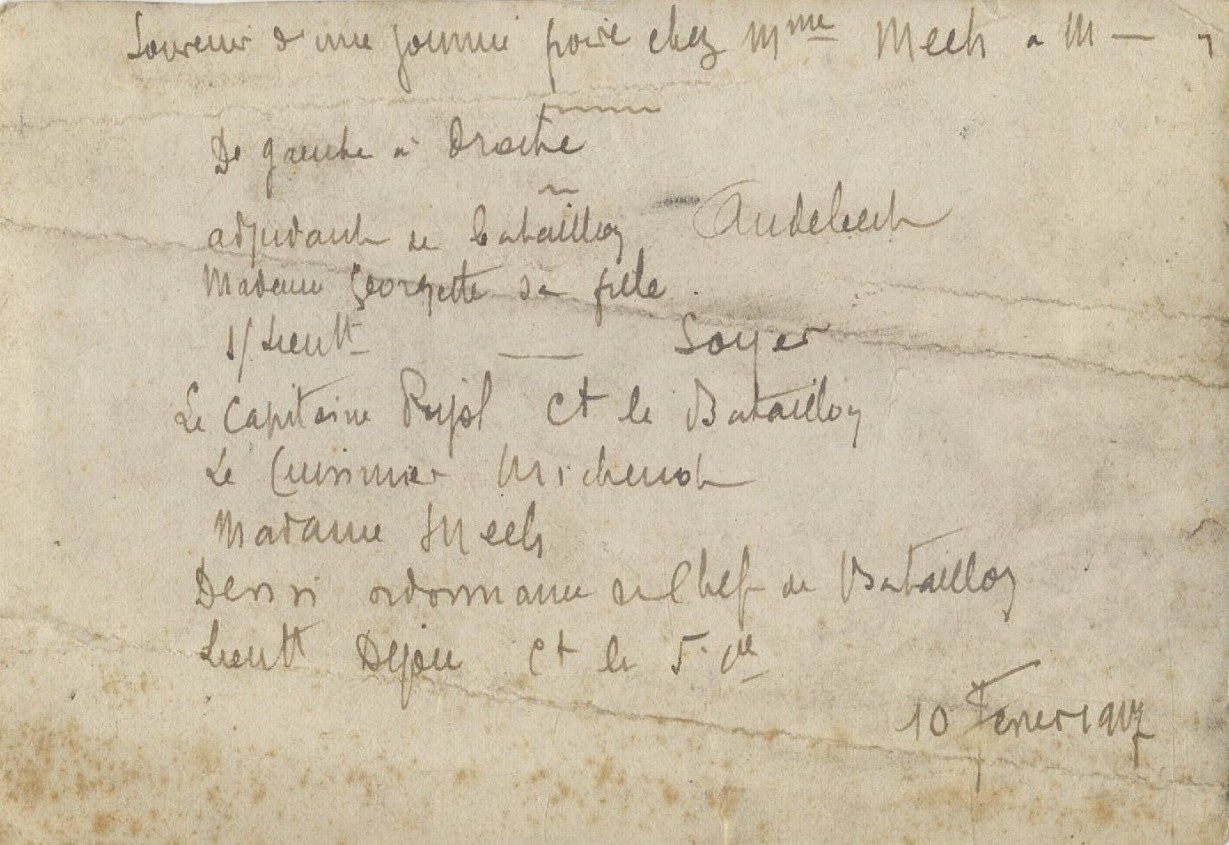 Souvenir d'une journée chez Mme Mech a M —
De gauche a Droite
adjudant de Bataillon Audebert
Madame Georgette sa fille
s/ Lieutt — Soyer
Le Capitaine Pujol Ct le Bataillon
Le Cuisinier Michenot
Madame Mech
ordonnance du Chef de Bataillon
Lieutt Dejou Ct le 5e Cie
10 Fevrier 1917